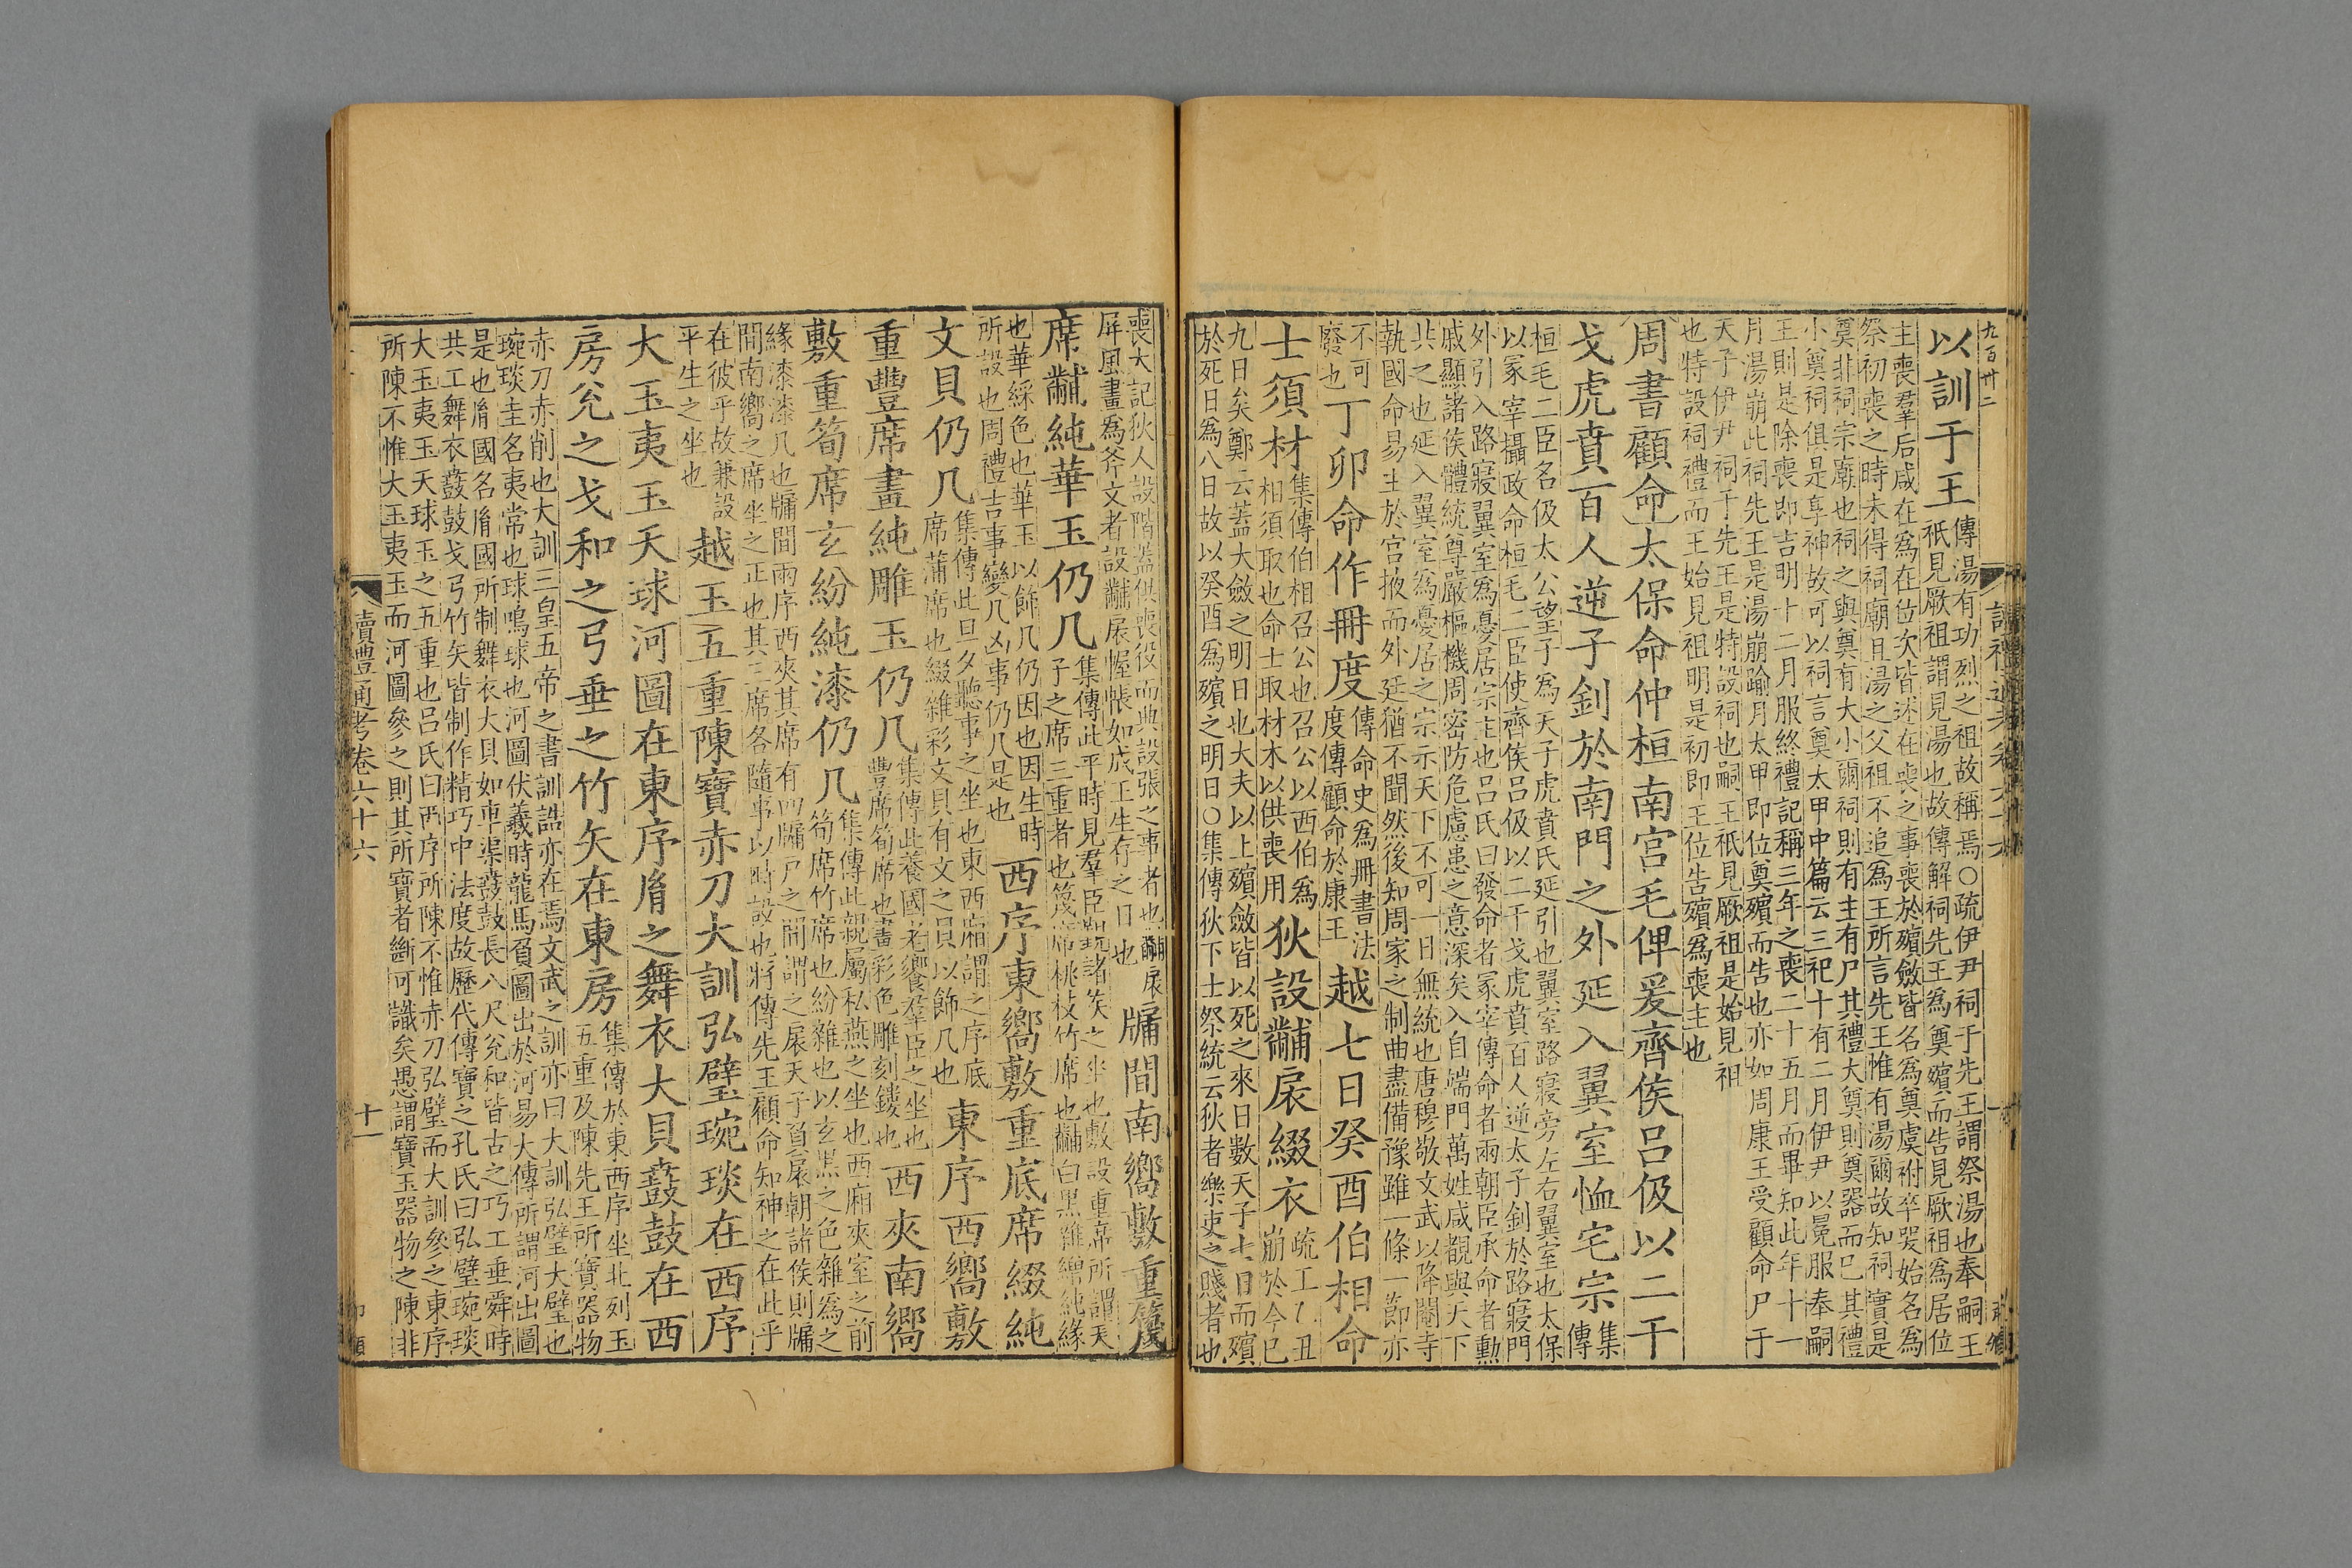 九百卅二
以訓于王
傳湯有功烈之祖故稱焉○疏伊尹祠于先王謂祭湯也奉嗣王
祇見厥祖謂見湯也故傳解祠先王爲奠殯而告見厥祖爲居位
主喪羣后咸在爲在位次皆述在喪之事喪於殯斂皆名爲奠虞祔卒哭始名爲
祭初喪之時未得祠廟且湯之父祖不追爲王所言先王惟有湯爾故知祠實是
奠非祠宗廟也祠之與奠有大小爾祠則有主有尸其禮大奠則奠器而已其禮
小奠祠俱是享神故可以祠言奠太甲中篇云三祀十有二月伊尹以冕服奉嗣
王則是除喪即吉明十二月服終禮記稱三年之喪二十五月而畢知此年十一
月湯崩此祠先王是湯崩踰月太甲即位奠殯而告也亦如周康王受顧命尸于
天子伊尹祠于先王是特設祠也嗣王祇見厥祖是始見祖
也特設祠禮而王始見祖明是初即王位告殯爲喪主也
周書顧命太保命仲桓南宮毛俾爰齊侯呂伋以二干
戈虎賁百人逆子釗於南門之外延入翼室恤宅宗
集
傳
桓毛二臣名伋太公望子爲天子虎賁氏延引也翼室路寢旁左右翼室也太保
以冢宰攝政命桓毛二臣使齊侯呂伋以二干戈虎賁百人逆太子釗於路寢門
外引入路寢翼室爲憂居宗主也呂氏曰發命者冢宰傳命者兩朝臣承命者勳
戚顯諸侯體統尊嚴樞機周密防危慮患之意深矣入自端門萬姓咸覩與天下
共之也延入翼室爲憂居之宗示天下不可一日無統也唐穆敬文武以降閹寺
執國命易主於宮掖而外廷猶不聞然後知周家之制曲盡備豫雖一條一節亦
不可
廢也
丁卯命作冊度
傳命史爲冊書法
度傳顧命於康王
越七日癸酉伯相命
士須材
集傳伯相召公也召公以西伯爲
相須取也命士取材木以供喪用
狄設黼扆綴衣
疏王乙丑
崩於今已
九日矣鄭云蓋大斂之明日也大夫以上殯斂皆以死之來日數天子七日而殯
於死日爲八日故以癸酉爲殯之明日○集傳狄下士祭統云狄者樂吏之賤者也
喪大記狄人設階蓋供喪役而典設張之事者也黼扆
屏風畫爲斧文者設黼扆幄帳如成王生存之日也
牖間南嚮敷重篾
席黼純華玉仍几
集傳此平時見羣臣覲諸侯之坐也敷設重席所謂天
子之席三重者也篾席桃枝竹席也黼白黑雜繒純緣
也華綵色也華玉以飾几仍因也因生時
所設也周禮吉事變几凶事仍几是也
西序東嚮敷重底席綴純
文貝仍几
集傳此旦夕聽事之坐也東西廂謂之序底
席蒲席也綴雜彩文貝有文之貝以飾几也
東序西嚮敷
重豐席畫純雕玉仍几
集傳此養國老饗羣臣之坐也
豐席筍席也畫彩色雕刻鏤也
西夾南嚮
敷重筍席玄紛純漆仍几
集傳此親屬私燕之坐也西廂夾室之前
筍席竹席也紛雜也以玄黑之色雜爲之
緣漆漆几也牖間兩序西夾其席有四牖戶之間謂之扆天子負扆朝諸侯則牖
間南嚮之席坐之正也其三席各隨事以時設也將傳先王顧命知神之在此乎
在彼乎故兼設
平生之坐也
越玉五重陳寶赤刀大訓弘璧琬琰在西序
大玉夷玉天球河圖在東序胤之舞衣大貝鼖鼓在西
房兊之戈和之弓垂之竹矢在東房
集傳於東西序坐北列玉
五重及陳先王所寶器物
赤刀赤削也大訓三皇五帝之書訓誥亦在焉文武之訓亦曰大訓弘璧大璧也
琬琰圭名夷常也球鳴球也河圖伏羲時龍馬負圖出於河易大傳所謂河出圖
是也胤國名胤國所制舞衣大貝如車渠鼖鼓長八尺兊和皆古之巧工垂舜時
共工舞衣鼖鼓戈弓竹矢皆制作精巧中法度故歷代傳寶之孔氏曰弘璧琬琰
大玉夷玉天球玉之五重也呂氏曰西序所陳不惟赤刀弘璧而大訓參之東序
所陳不惟大玉夷玉而河圖參之則其所寶者斷可識矣愚謂寶玉器物之陳非
讀禮通考卷六十六
十一